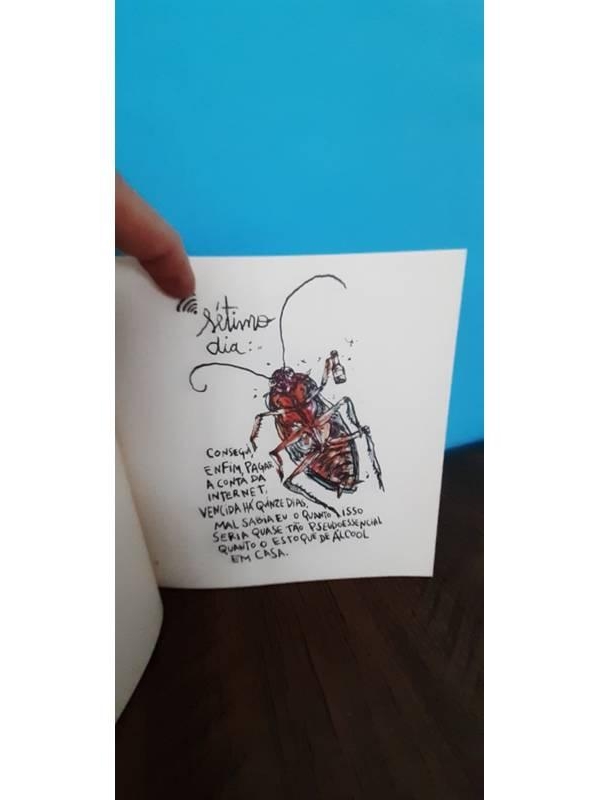 sétimo
dia:.
CONSEGUI,
ENFIM, PAGAR
A CONTA DA
INTERNET,
VENCIDA HÁ QUINZE DIAS,
MAL SABIA EU O QUANTO ISSO
SERIA QUASE TÃO PSEUDOESSENCIAL
QUANTO O ESTOQUE DE ÁLCOOL
EM CASA.